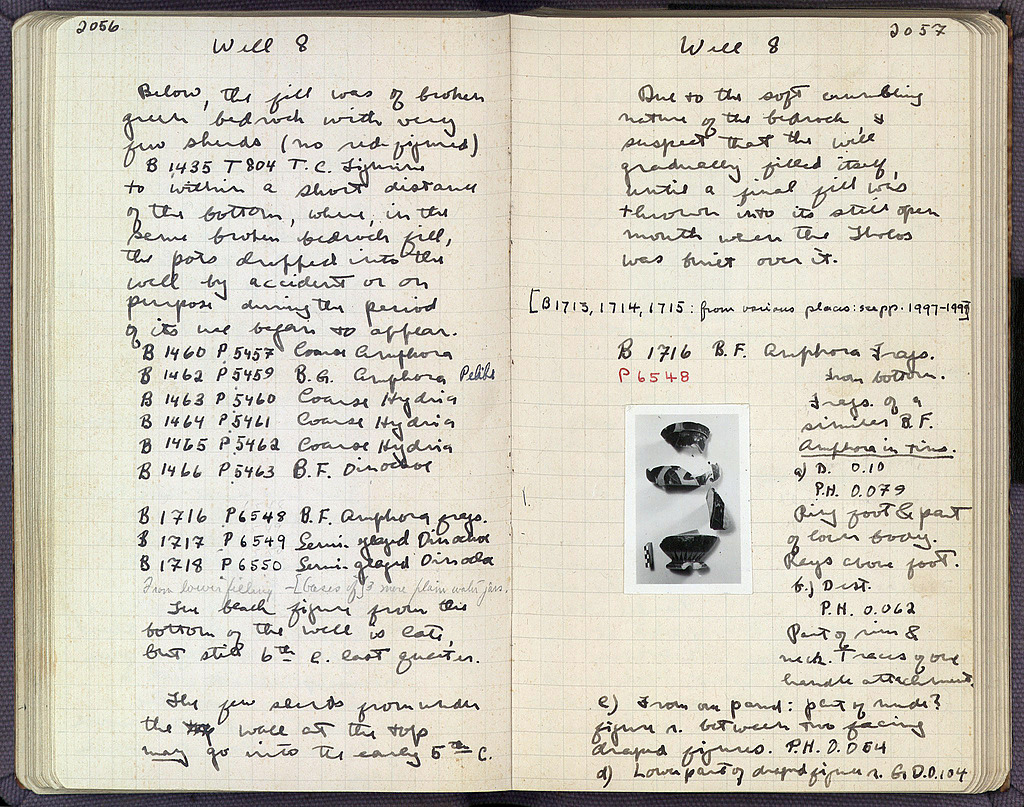 2056
Well 8
Below, the fill was of broken
green bedrock with very
few sherds (no red-figured)
B 1435 T 804 T.C. Figurine
to within a short distance
of the bottom, where, in the
same broken bedrock fill,
the pots dropped into the
well by accident or on
purpose during the period
of its use began to appear.
B 1460 P 5457 Coarse Amphora
B 1462 P 5459 B.G. Amphora Pelike
B 1463 P 5460 Coarse Hydria
B 1464 P 5461 Coarse Hydria
B 1465 P 5462 Coarse Hydria
B 1466 P 5463 B.F. Oinochoe
B 1716 P 6548 B.F. Amphora frags.
B 1717 P 6549 Semi-glazed Oinochoe
B 1718 P 6550 Semi-glazed Oinochoe
From lower filling - [bases of] 3 more plain water jars.
The black figure from the
bottom of the well is late,
but still 6th c. last quarter.
The few sherds from under
the wall at the top
may go into the early 5th C.
2057
Well 8
Due to the soft crumbling
nature of the bedrock I
suspect that the well
gradually filled itself,
until a final fill was
thrown into its still open
mouth when the Tholos
was built over it.
[B 1713, 1714, 1715: from various places: see pp. 1997-1998]
B 1716 B.F. Amphora Frags.
P 6548
From bottom.
Frags. of a
similar B.F.
Amphora in
a) D. 0.10
P.H. 0.079
Ring foot & part
of lower body.
Rays above foot.
b.) Dist.
P.H. 0.062
Part of rim &
neck. Traces of one
handle attachment.
c) From one panel: part of nude?
figure r. between two facing
draped figures. P.H. 0.054
d) Lower part of draped figure r. G.D. 0.104